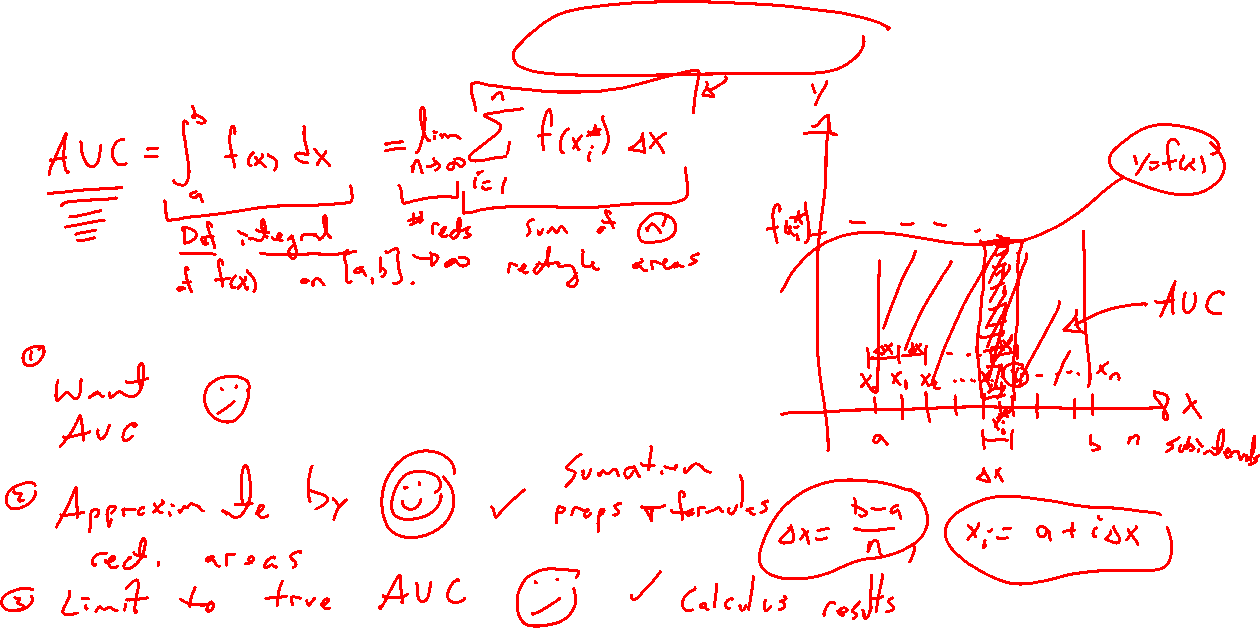 AUC = ∫_a^b f(x) dx = lim_{n→∞} Σ_{i=1}^{n} f(x_i^*) Δx
Def integral
of f(x) on [a,b].
# rects
→∞
sum of "n"
rectngle areas
y
y=f(x)
f(x_i^*)
AUC
Δx Δx
x_1 x_2 ... x_n
x_i^*
a b n
x
subintervals
Δx
① Want
AUC
② Approximate by
rect. areas
✓ Sumation
props + formulas
Δx = (b-a)/n
x_i = a + iΔx
③ Limit to true AUC
✓ Calculus results